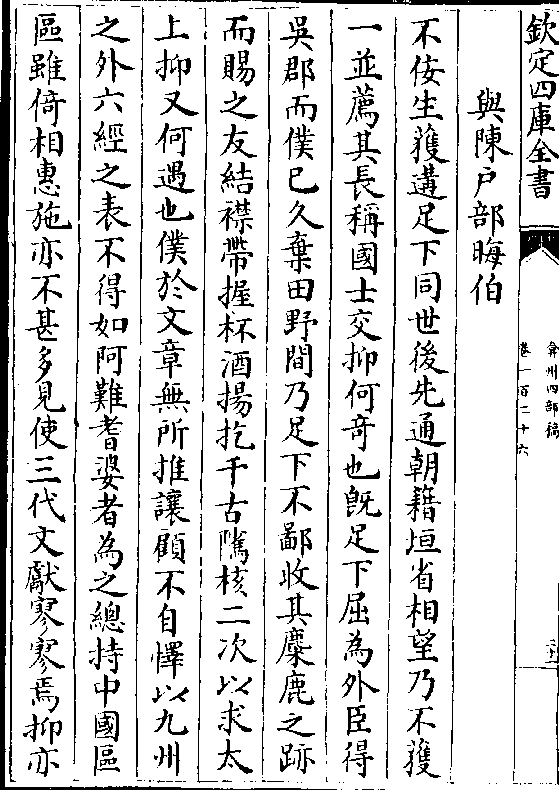 欽定四庫全書
弇州四部稿
卷一百二十六
與陳户部晦伯
不佞生獲遘足下同世後先通朝籍垣省相望乃不獲
一並薦其長稱國士交抑何竒也既足下屈為外臣得
吳郡而僕已久棄田野間乃足下不鄙收其麋鹿之跡
而賜之友結襟帶握杯酒揚扢千古隲核二次以求太
上抑又何遇也僕於文章無所推讓顧不自懌以九州
之外六經之表不得如阿難耆婆者為之總持中國區
區雖倚相惠施亦不甚多見使三代文獻寥寥焉抑亦